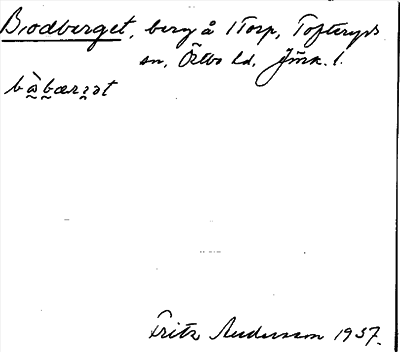 Brodberget, berg å Torp, Tofteryds
sn, Östbo hd, Jönk. l.
Fritz Andersson 1937.